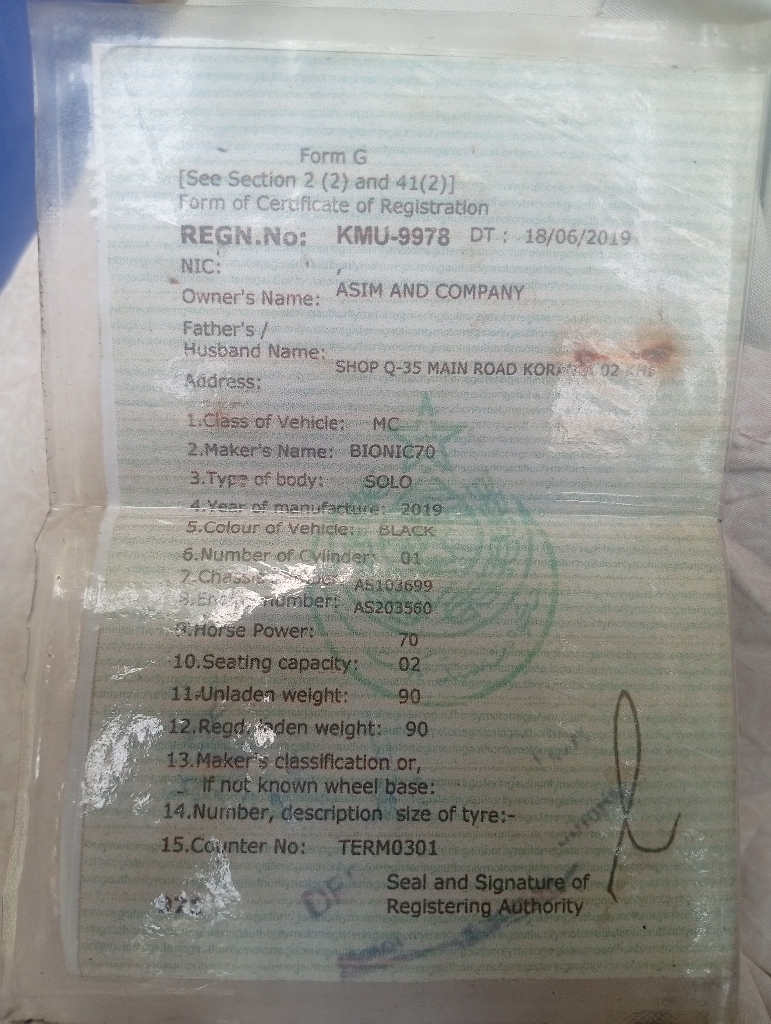 Form G
[See Section 2 (2) and 41(2)]
Form of Certificate of Registration
REGN.No: KMU-9978 DT : 18/06/2019
NIC: ,
Owner's Name: ASIM AND COMPANY
Father's /
Husband Name:
Address: SHOP Q-35 MAIN ROAD 02
1.Class of Vehicle: MC
2.Maker's Name: BIONIC70
3.Type of body: SOLO
4.Year of manufacture: 2019
5.Colour of Vehicle: BLACK
6.Number of Cylinder: 01
7.Chassis AS103699
8. number: AS203560
9.Horse Power: 70
10.Seating capacity: 02
11.Unladen weight: 90
12.Regd. laden weight: 90
13.Maker's classification or,
if not known wheel base:
14.Number, description size of tyre:-
15.Counter No: TERM0301
Seal and Signature of
Registering Authority